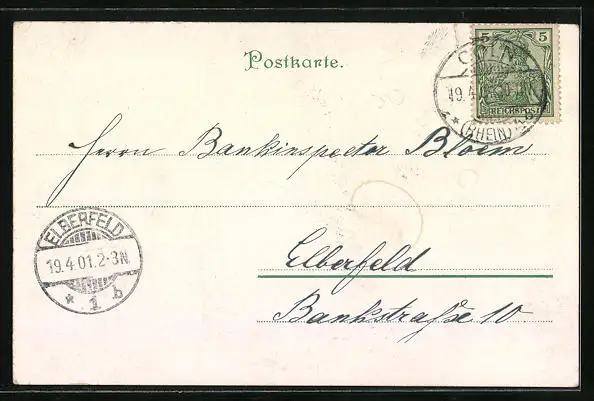 Postkarte.
5 5
REICHSPOST
CÖLN
19.4
(RHEIN)
Herrn Bankinspector Bloem
ELBERFELD
19.4.01.2-3N.
* 1 b
Elberfeld
Bankstraße 10